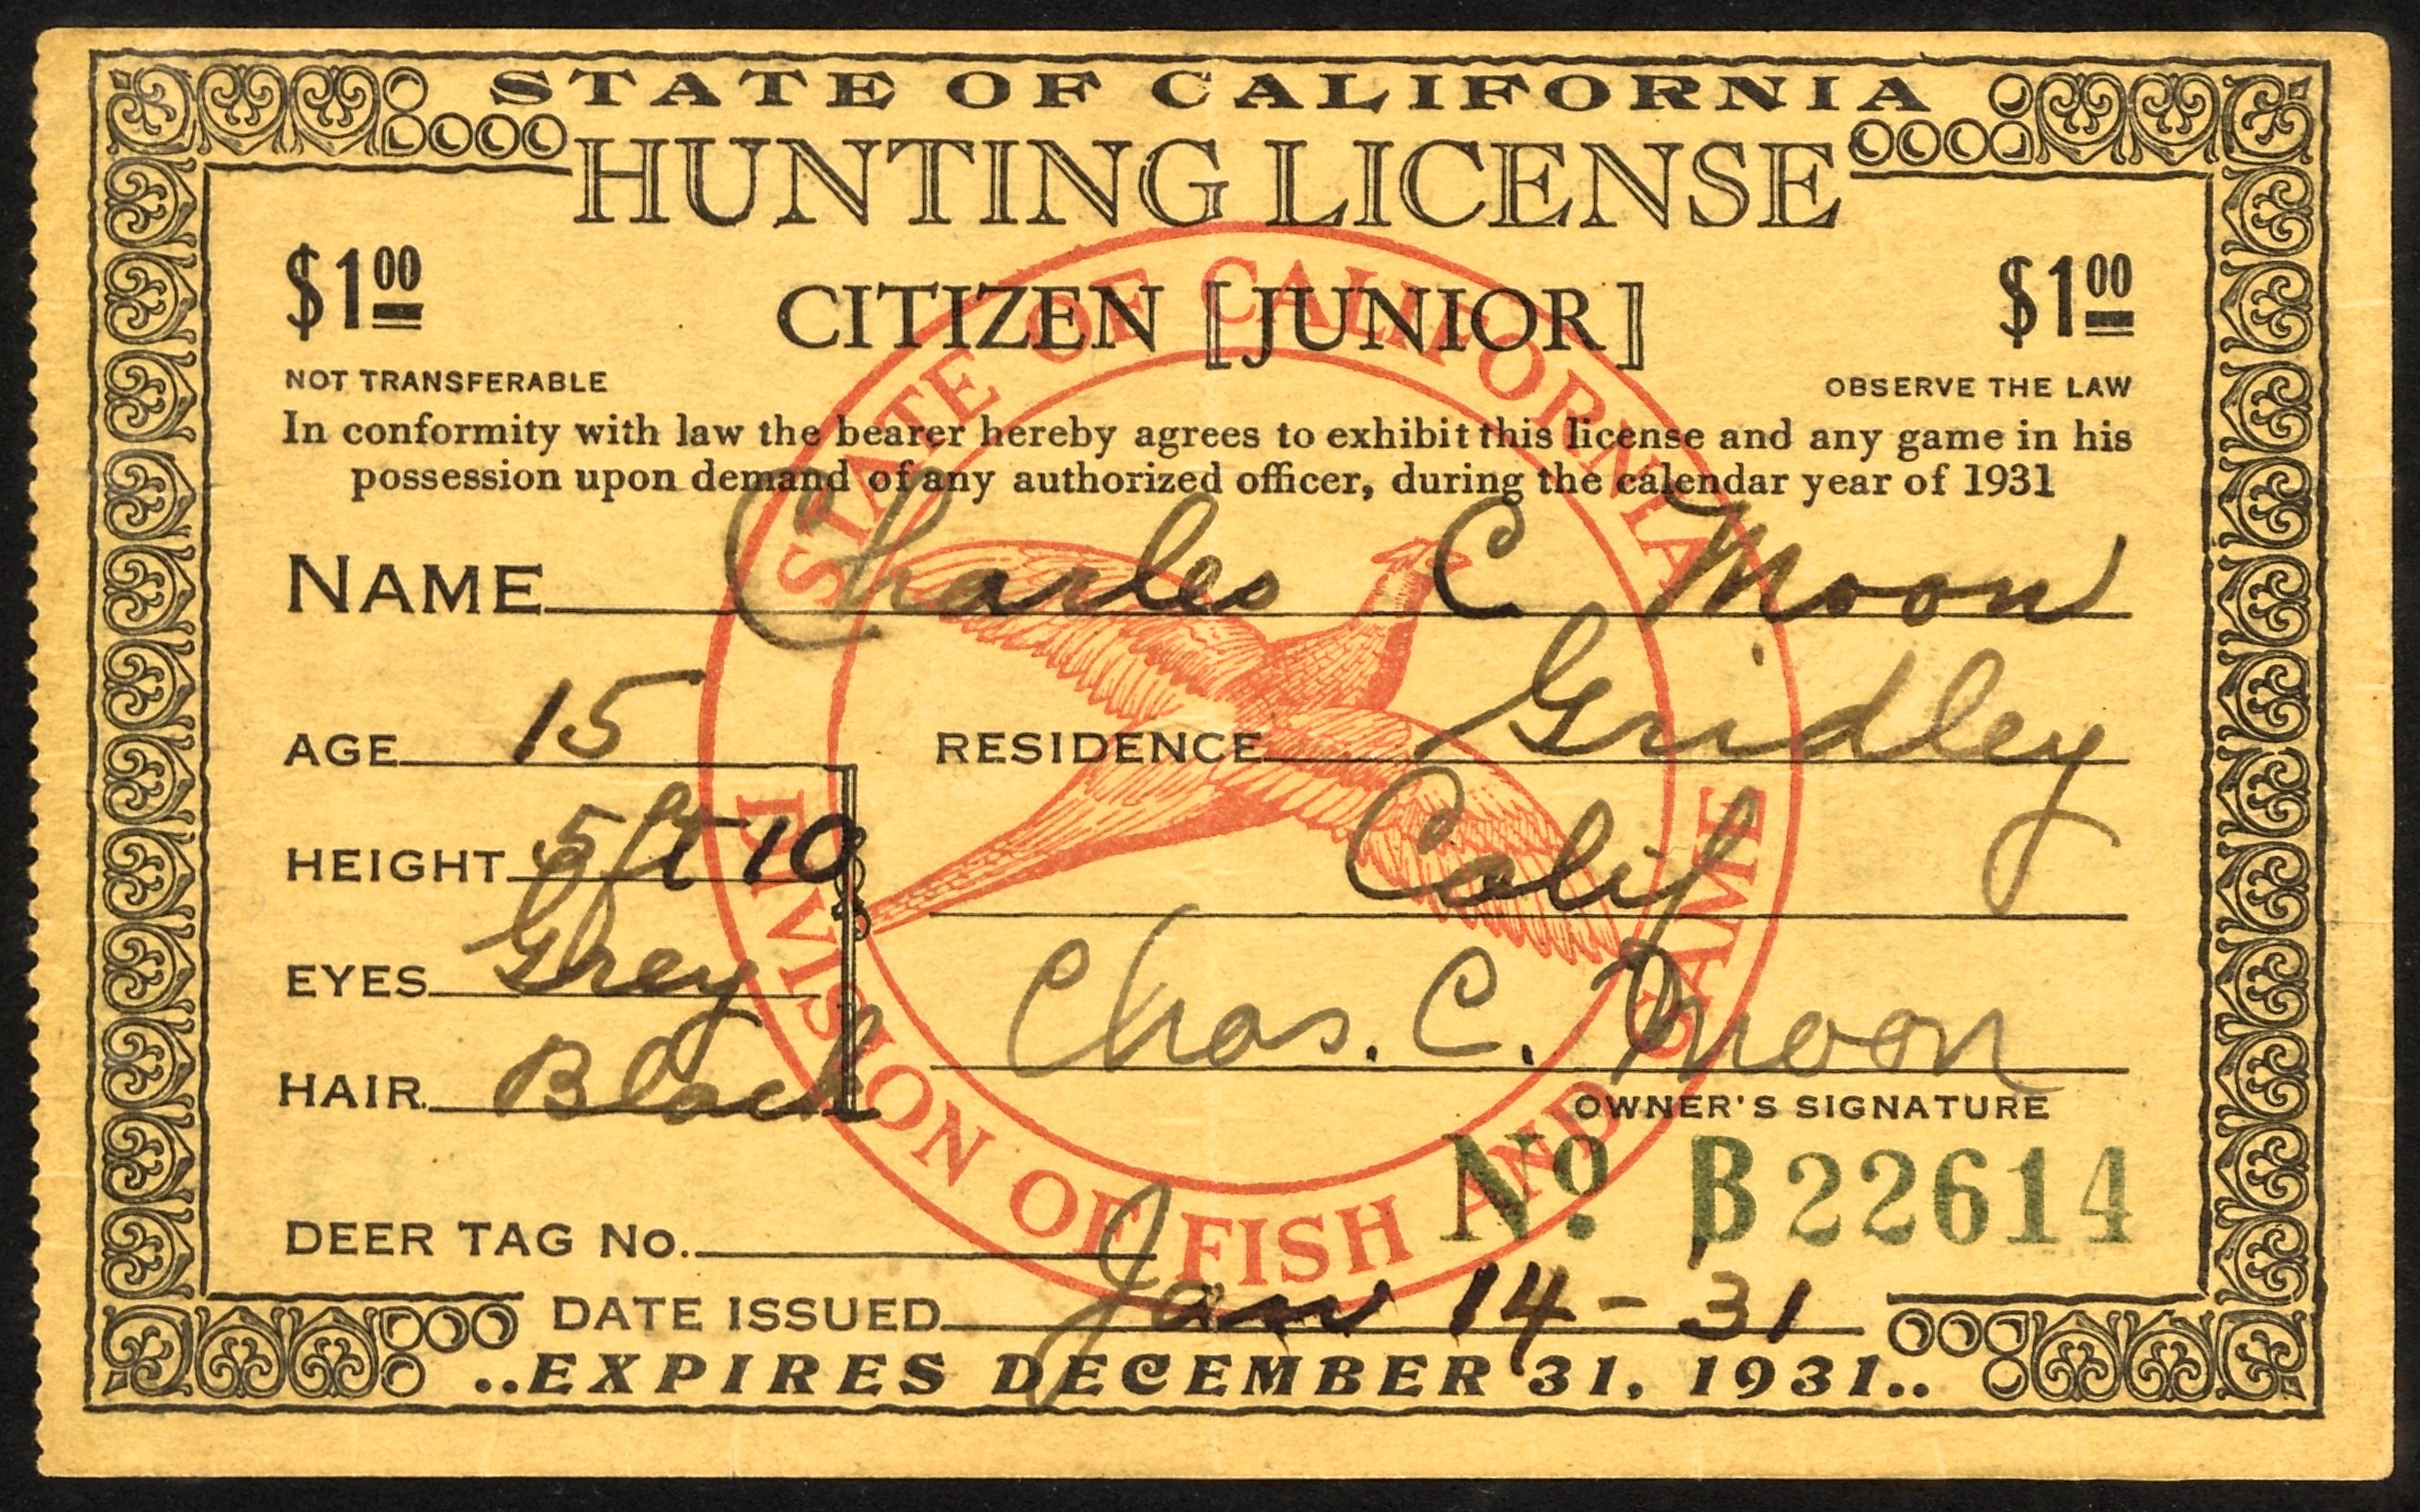 STATE OF CALIFORNIA
HUNTING LICENSE
$1.00 CITIZEN [JUNIOR] $1.00
NOT TRANSFERABLE OBSERVE THE LAW
In conformity with law the bearer hereby agrees to exhibit this license and any game in his
possession upon demand of any authorized officer, during the calendar year of 1931
NAME Charles C Moon
AGE 15 RESIDENCE Gridley
HEIGHT 5 ft 10 Calif
EYES Grey
HAIR Black Chas. C. Moon
OWNER'S SIGNATURE
No. B22614
DEER TAG No.
DATE ISSUED Jan 14-31
..EXPIRES DECEMBER 31, 1931..
STATE OF CALIFORNIA
DIVISION OF FISH AND GAME